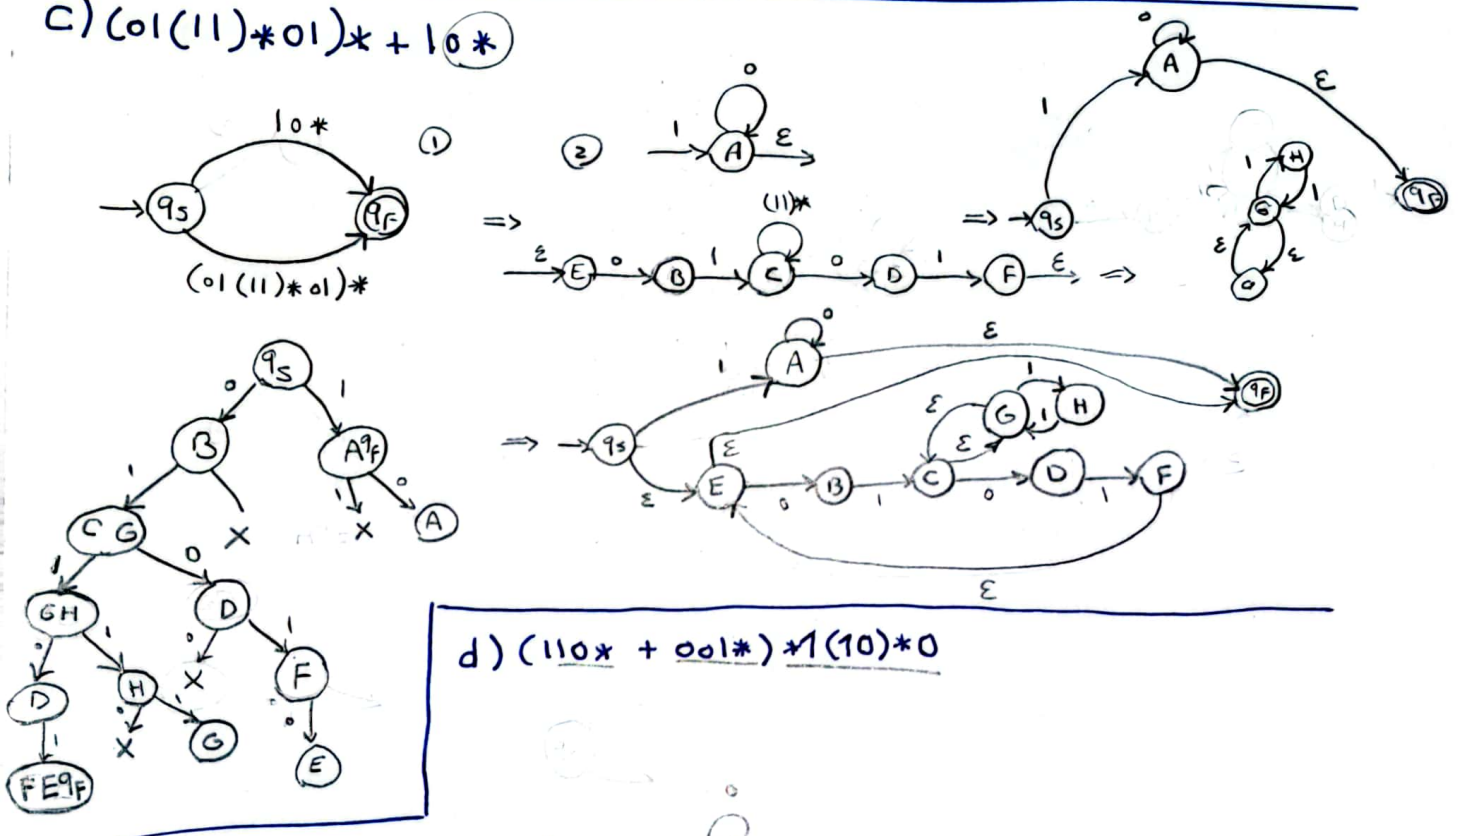 c) (01(11)*01)* + 10*
10*
①
qs
qF
(01(11)*01)*
②
1 A 0 ε
=>
(11)*
ε E 0 B 1 C 0 D 1 F ε =>
=> qs 1 A 0 ε qF
1 H 1
G
ε ε
qs
0 1
B AqF
1 X 1 X 0 A
C G
1 0
GH D
1 0 X 1
D H F
1 X G 0
FEqF E
=> qs 1 A 0 ε qF
ε G 1 H 1
ε ε E 0 B 1 C ε 0 D 1 F
ε
d) (110* + 001*)*1(10)*0
0